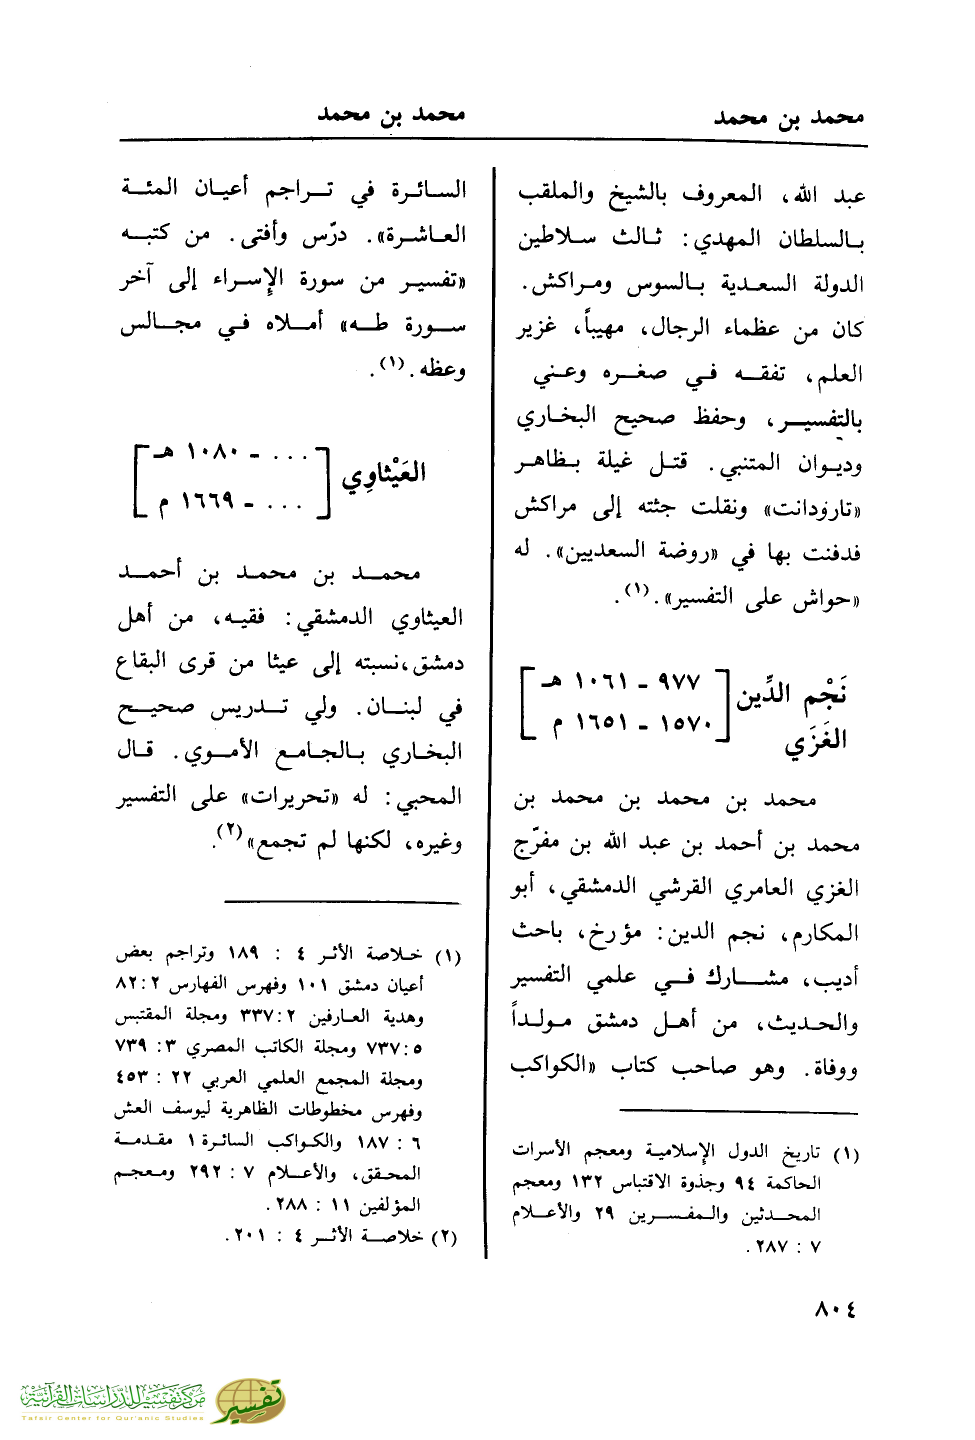 محمد بن محمد
محمد بن محمد
عبد الله، المعروف بالشيخ والملقب
بالسلطان المهدي: ثالث سلاطين
الدولة السعدية بالسوس ومراكش.
كان من عظماء الرجال، مهيباً، غزير
العلم، تفقه في صغره وعني
بالتفسير، وحفظ صحيح البخاري
وديوان المتنبي. قتل غيلة بظاهر
«تارودانت» ونقلت جثته إلى مراكش
فدفنت بها في «روضة السعديين». له
«حواش على التفسير».(١).
نَجْم الدِّين
الغَزَي
[٩٧٧ - ١٠٦١ هـ
١٥٧٠ - ١٦٥١ م]
محمد بن محمد بن محمد بن
محمد بن أحمد بن عبد الله بن مفرّج
الغزي العامري القرشي الدمشقي، أبو
المكارم، نجم الدين: مؤرخ، باحث
أديب، مشارك في علمي التفسير
والحديث، من أهل دمشق مولداً
ووفاة. وهو صاحب كتاب «الكواكب
(١) تاريخ الدول الإسلامية ومعجم الأسرات
الحاكمة ٩٤ وجذوة الاقتباس ١٣٢ ومعجم
المحدثين والمفسرين ٢٩ والأعلام
٧ : ٢٨٧.
السائرة في تراجم أعيان المئة
العاشرة». درّس وأفتى. من كتبه
«تفسير من سورة الإسراء إلى آخر
سورة طه» أملاه في مجالس
وعظه.(١).
العَيْثاوِي
[... - ١٠٨٠ هـ
... - ١٦٦٩ م]
محمد بن محمد بن أحمد
العيثاوي الدمشقي: فقيه، من أهل
دمشق،نسبته إلى عيثا من قرى البقاع
في لبنان. ولي تدريس صحيح
البخاري بالجامع الأموي. قال
المحبي: له «تحريرات» على التفسير
وغيره، لكنها لم تجمع»(٢).
(١) خلاصة الأثر ٤ : ١٨٩ وتراجم بعض
أعيان دمشق ١٠١ وفهرس الفهارس ٢:٨٢
وهدية العارفين ٢:٣٣٧ ومجلة المقتبس
٥:٧٣٧ ومجلة الكاتب المصري ٣: ٧٣٩
ومجلة المجمع العلمي العربي ٢٢ : ٤٥٣
وفهرس مخطوطات الظاهرية ليوسف العش
٦ : ١٨٧ والكواكب السائرة ١ مقدمة
المحقق، والأعلام ٧ : ٢٩٢ ومعجم
المؤلفين ١١ : ٢٨٨.
(٢) خلاصة الأثر ٤ : ٢٠١.
٨٠٤
مركز تفسير للدراسات القرآنية
Tafsir Center for Qur'anic Studies
تفسير